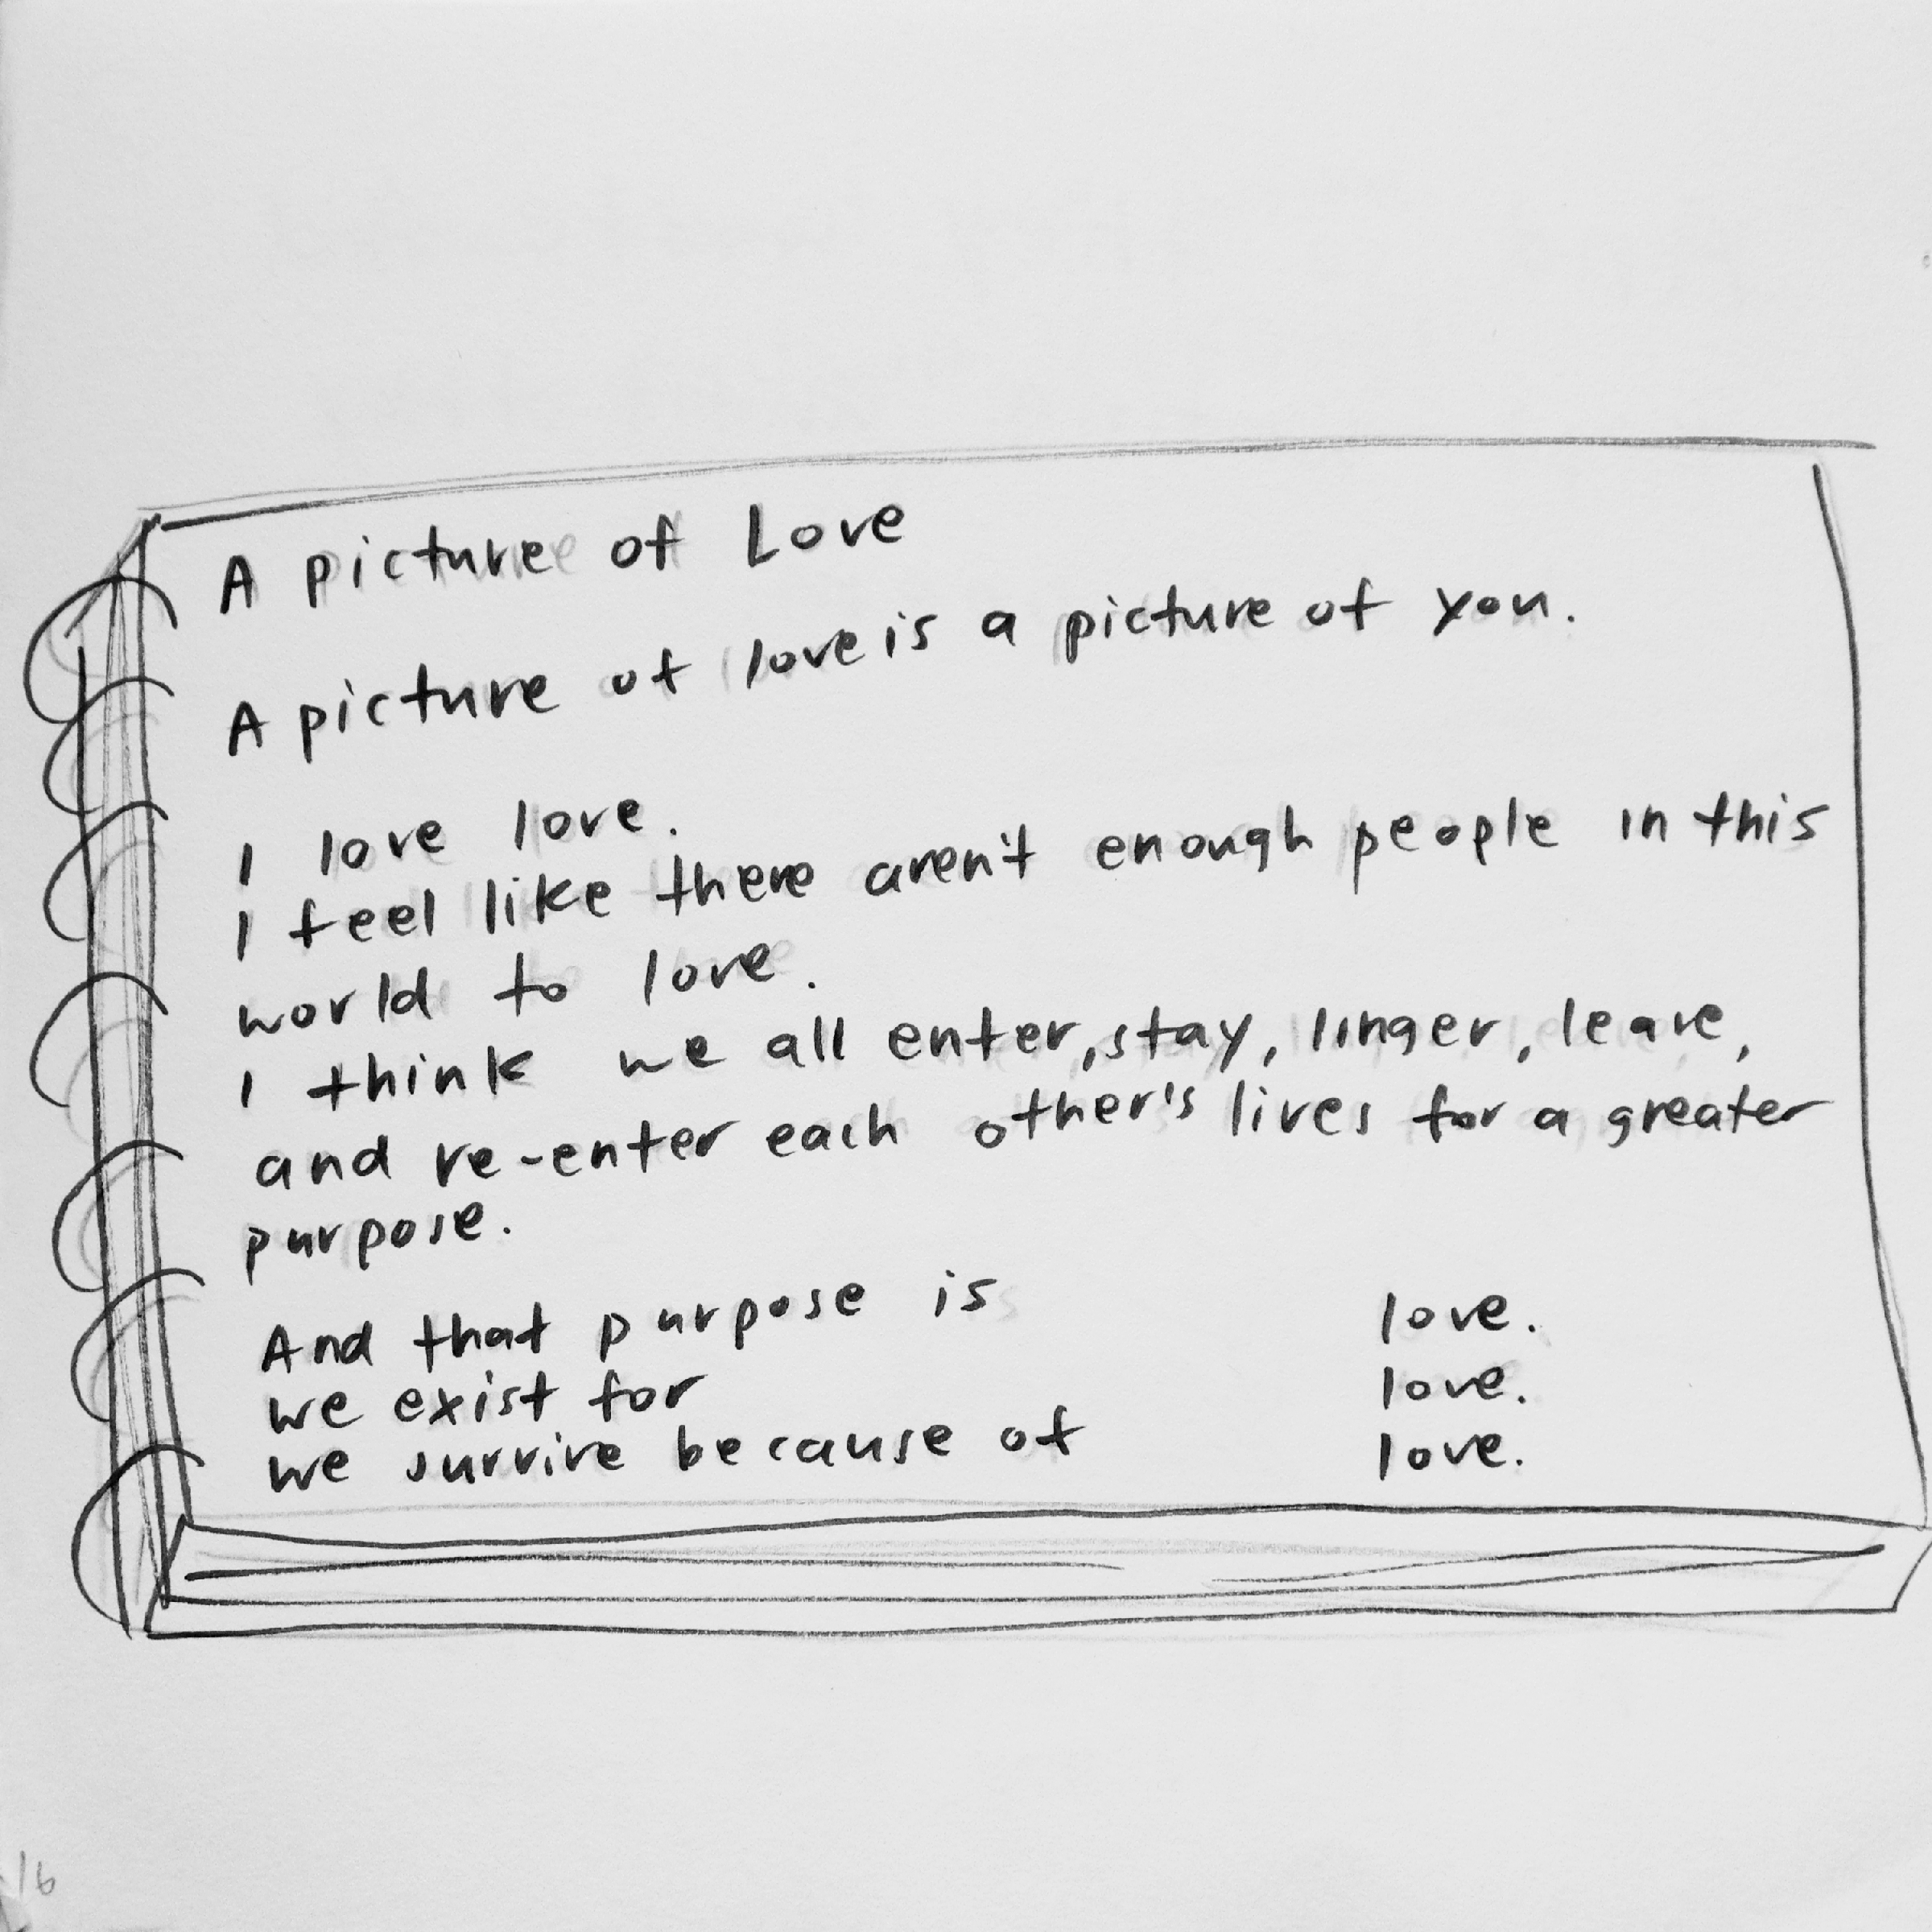 A picture of Love
A picture of love is a picture of you.
I love love.
I feel like there aren't enough people in this
world to love.
I think we all enter, stay, linger, leave,
and re-enter each other's lives for a greater
purpose.
And that purpose is love.
We exist for love.
We survive because of love.
16